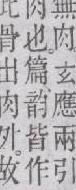 無肉玄應兩引
肉也。篇韵皆作
骨出肉外。故